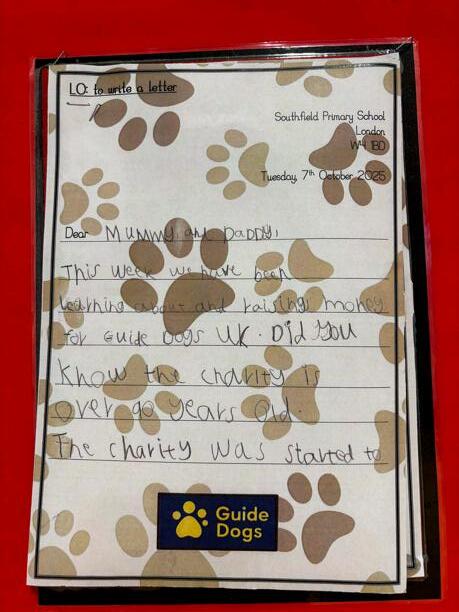 LO: to write a letter
Southfield Primary School
London
W4 1BD
Tuesday, 7th October 2025
Dear Mummy and Daddy,
This week we have been
learning about and raising money
for Guide Dogs UK. Did you
know the charity is
over 90 years old.
The charity was started to
Guide
Dogs